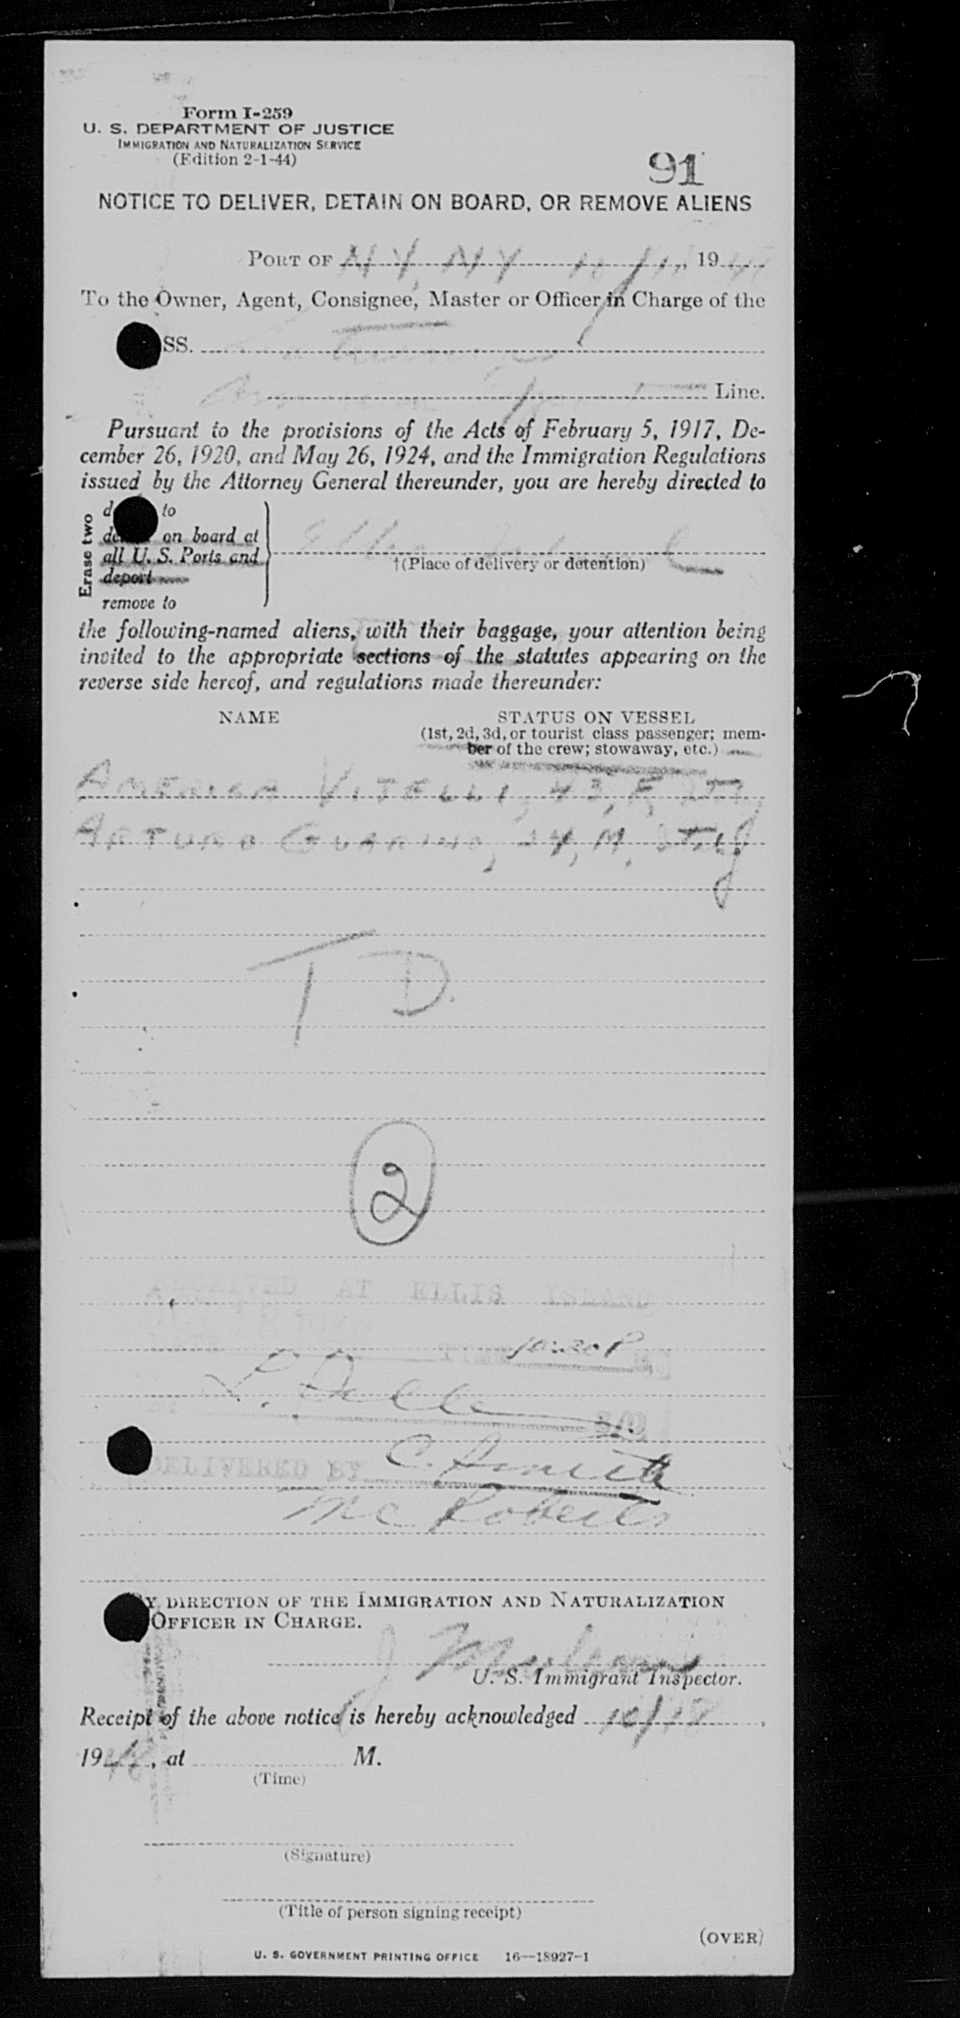 Form I-259
U. S. DEPARTMENT OF JUSTICE
IMMIGRATION AND NATURALIZATION SERVICE
(Edition 2-1-44)
91
NOTICE TO DELIVER, DETAIN ON BOARD, OR REMOVE ALIENS
PORT OF N Y, N Y 19
To the Owner, Agent, Consignee, Master or Officer in Charge of the
SS.
Line.
Pursuant to the provisions of the Acts of February 5, 1917, De-
cember 26, 1920, and May 26, 1924, and the Immigration Regulations
issued by the Attorney General thereunder, you are hereby directed to
Erase two
to
on board at
all U. S. Ports and
deport
remove to
Ellis
†(Place of delivery or detention)
the following-named aliens, with their baggage, your attention being
invited to the appropriate sections of the statutes appearing on the
reverse side hereof, and regulations made thereunder:
NAME STATUS ON VESSEL
(1st, 2d, 3d, or tourist class passenger; mem-
ber of the crew; stowaway, etc.)
AMERICA VITELLI, 43, F,
ARTURO GUARINO, 24, M, Italy
T D.
2
ARRIVED AT ELLIS ISLAND
10:30 P
DELIVERED BY C. Smith
McRoberts
BY DIRECTION OF THE IMMIGRATION AND NATURALIZATION
OFFICER IN CHARGE.
U. S. Immigrant Inspector.
Receipt of the above notice is hereby acknowledged 10/18,
1948, at M.
(Time)
(Signature)
(Title of person signing receipt)
(OVER)
U. S. GOVERNMENT PRINTING OFFICE 16—18927-1